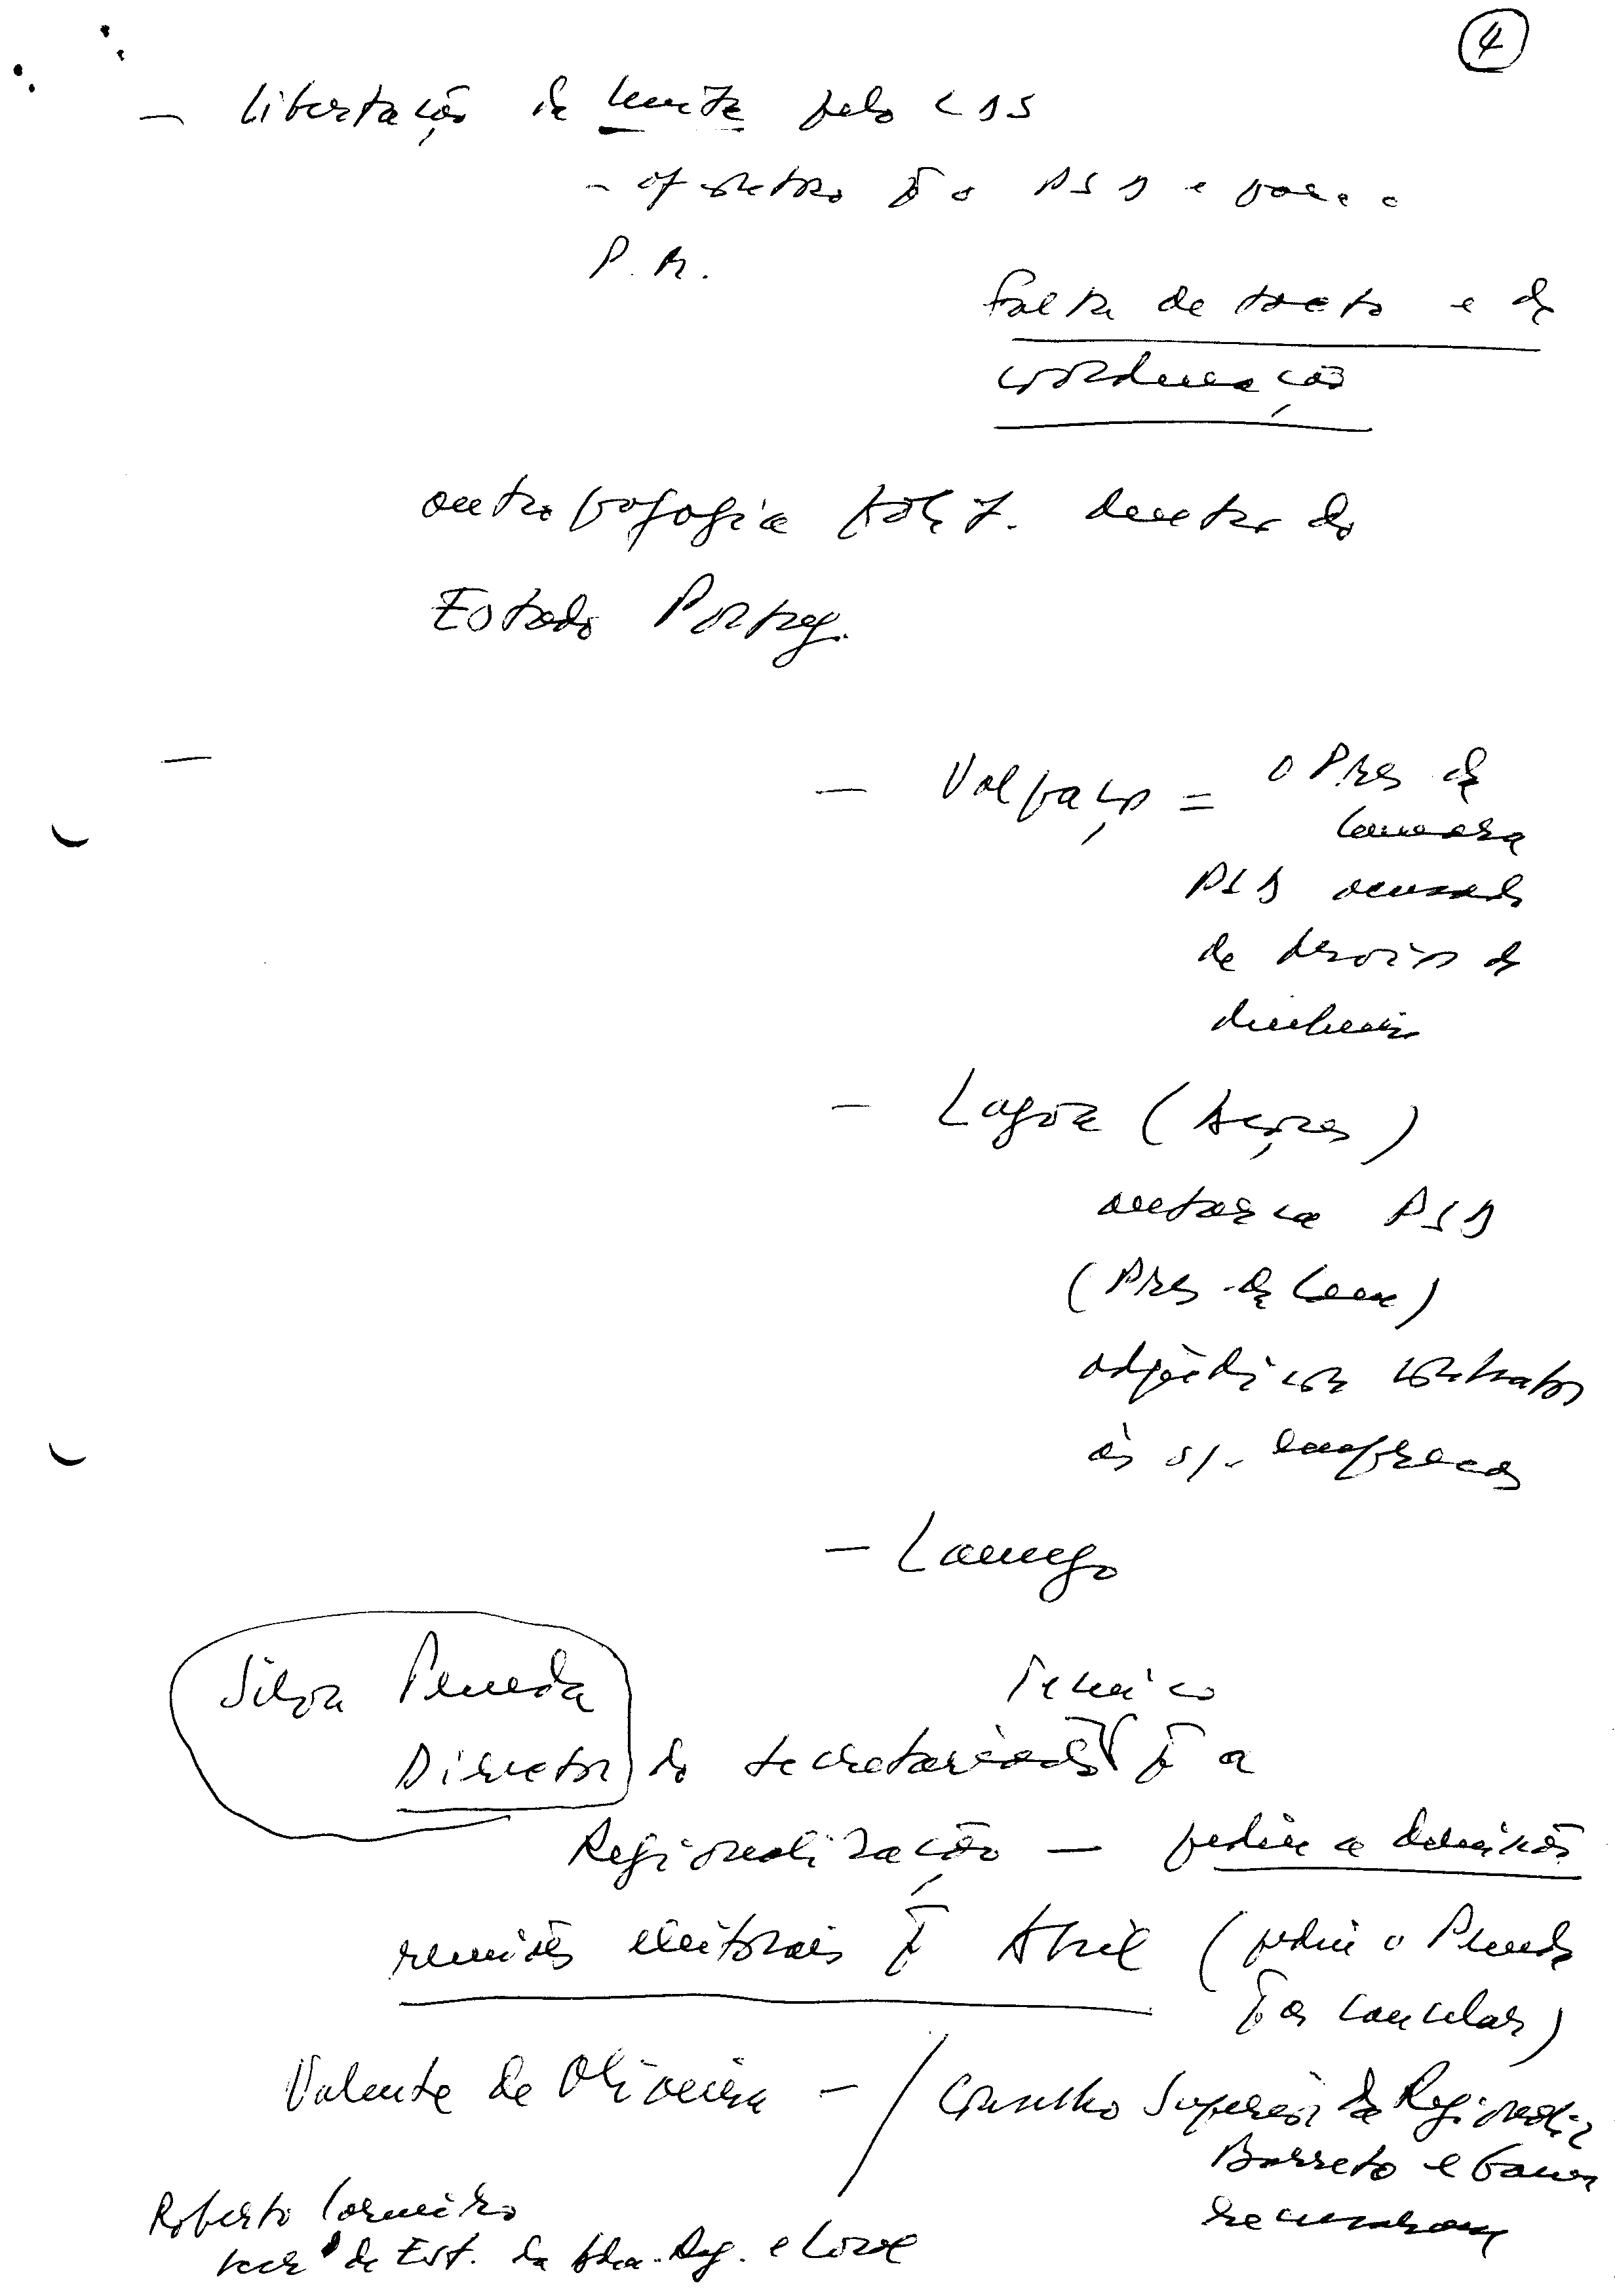 4
— libertação da pelo CDS
- p̄ o PSD e para o
P. M.
falta de tacto e de
coordenação
antropofagia polít. dentro do
Estado Portug.
—
— Valpaços = o Pres da
Camara
PSD acusado
de desvio de
dinheiro
— Lagoa (Açores)
autarca PSD
(Pres. da Cam)
contratos
às s/. empresas
— Lamego
Silva Peneda
Técnico
Director do secretariado p̄ a
Regionalização — pediu a demissão
reuniões eleitorais p̄ Abril (pediu o Peneda
p̄ as cancelar)
Valente de Oliveira — / Conselho Superior da Regionaliz
Barreto e Gama
recusaram
Roberto Carneiro
secr de Est. da Adm. Reg. e Local